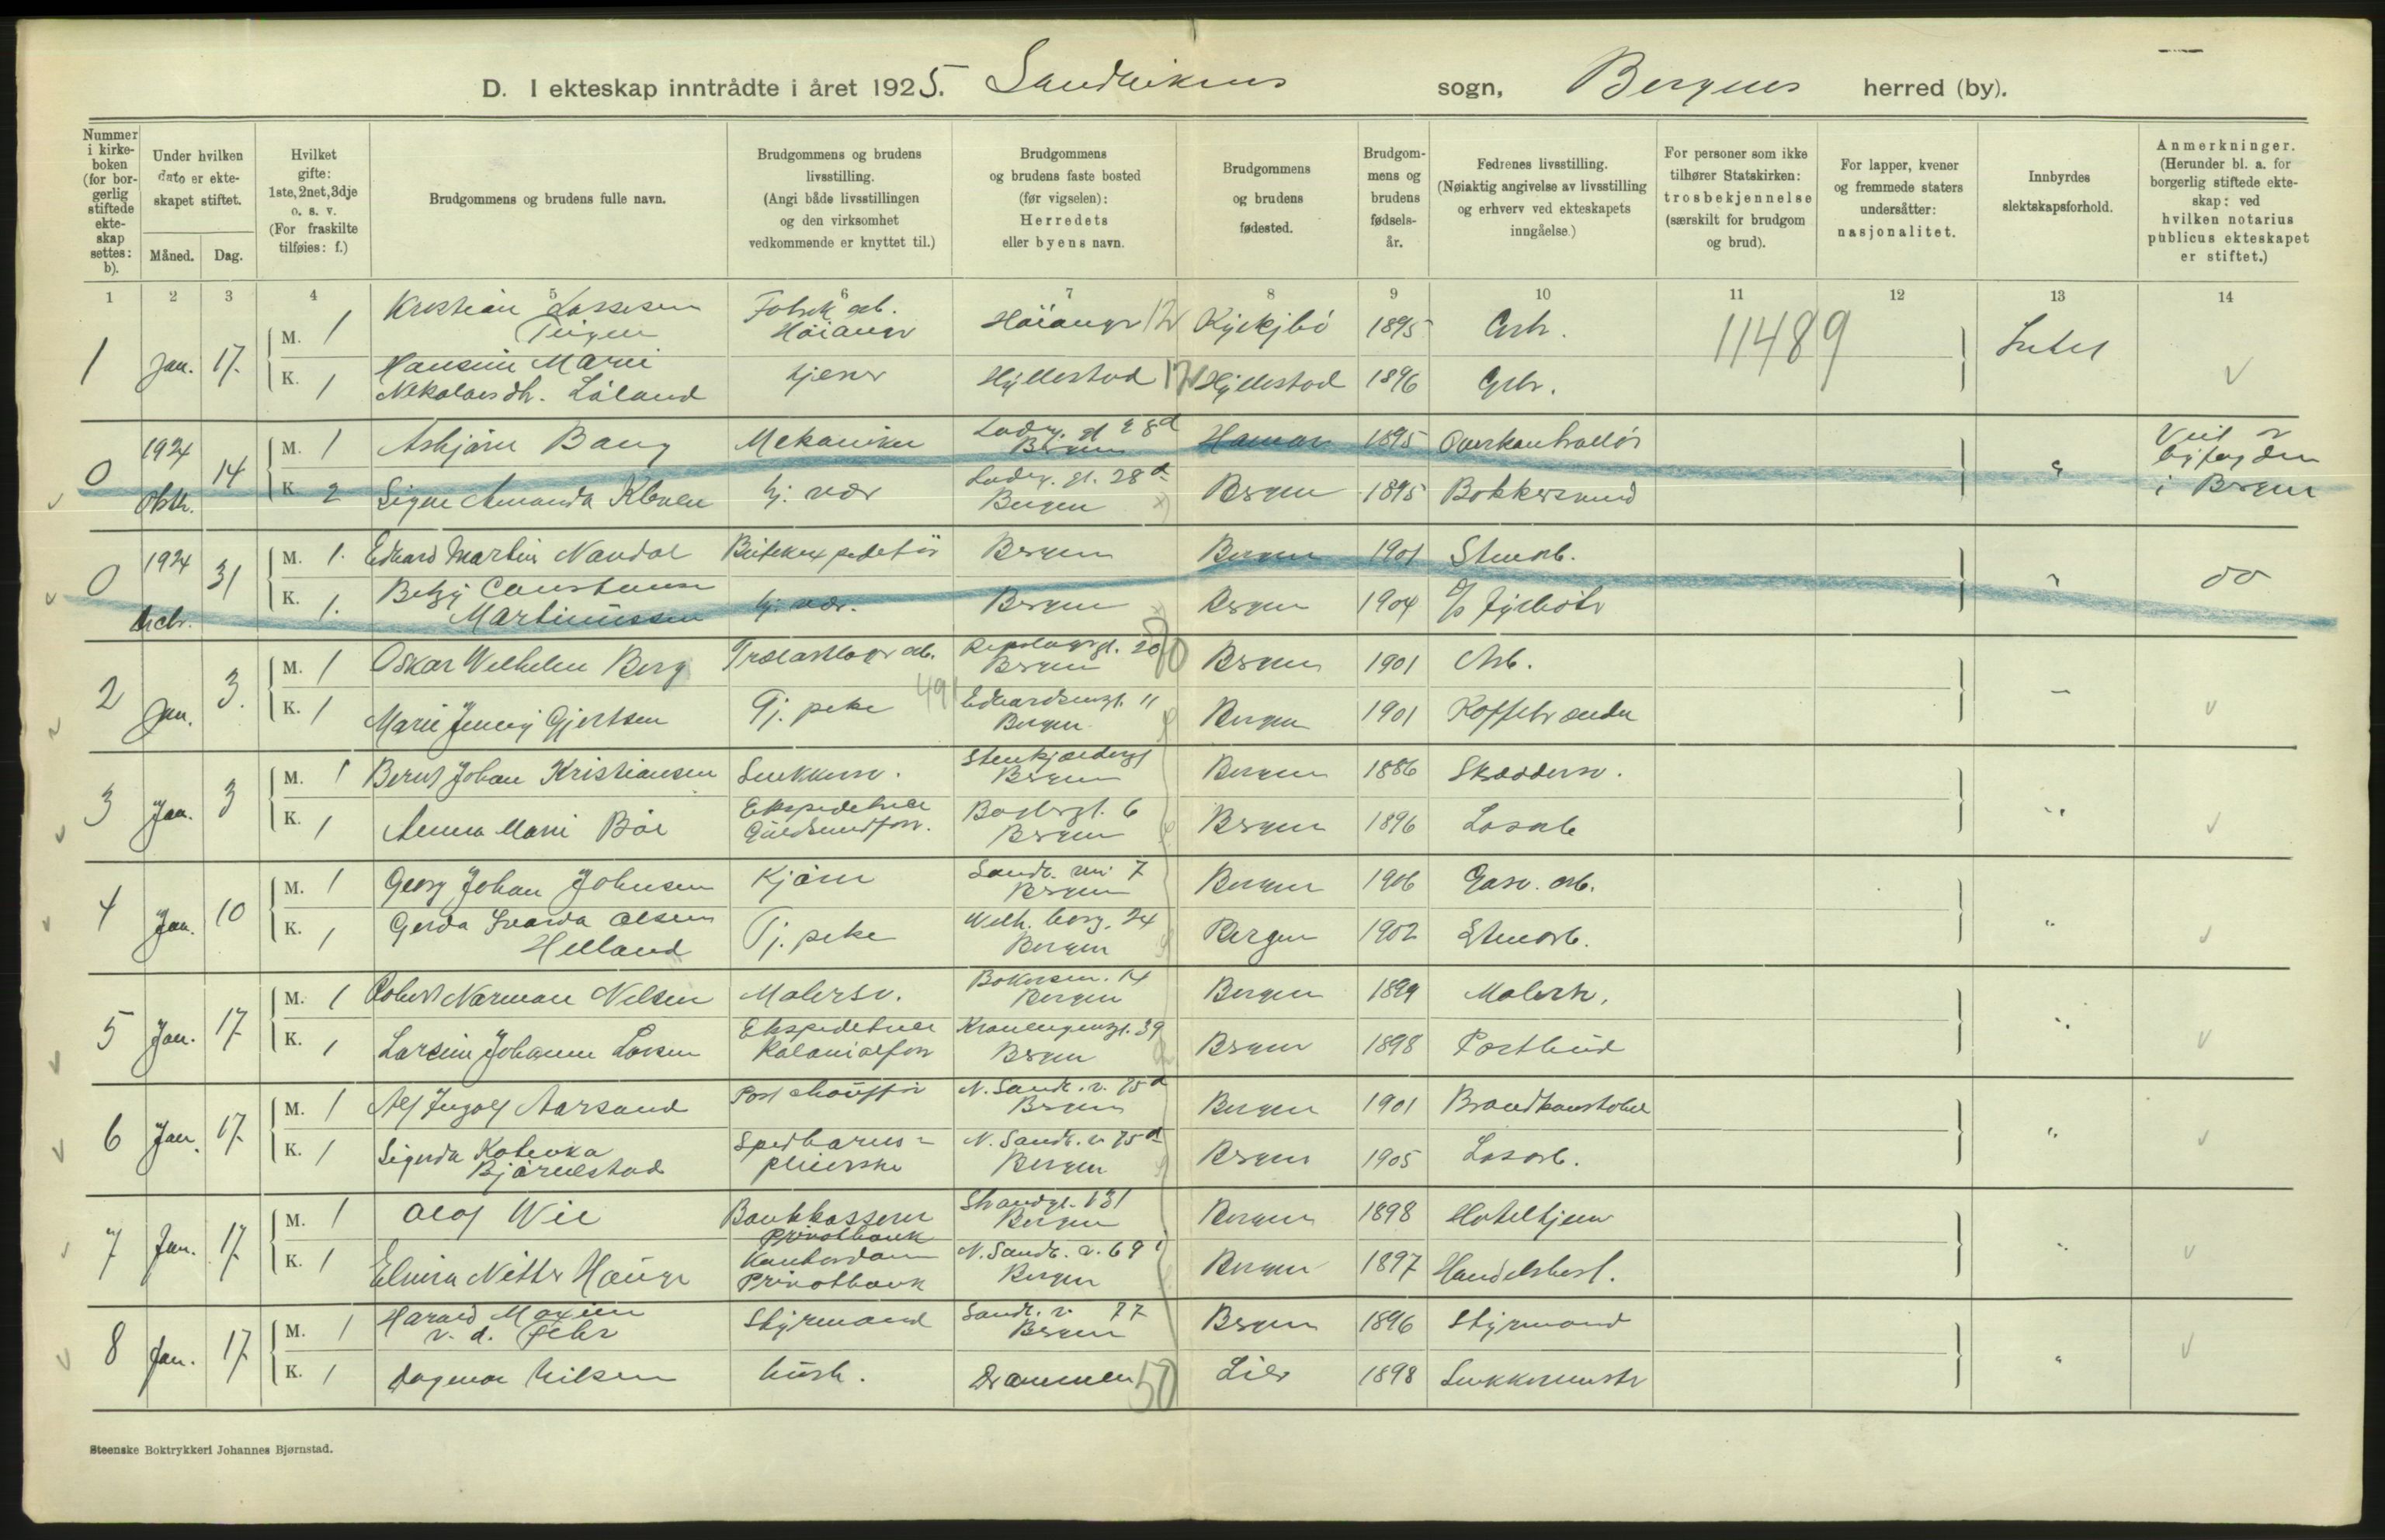 D. I ekteskap inntrådte i året 1925. Sandvikens sogn, Bergens herred (by).
Nummer i kirkeboken (for borgerlig stiftede ekteskap settes: b).
Under hvilken dato er ekteskapet stiftet.
Måned. Dag.
Hvilket gifte: 1ste, 2net, 3dje o. s. v. (For fraskilte tilføies: f.)
Brudgommens og brudens fulle navn.
Brudgommens og brudens livsstilling. (Angi både livsstillingen og den virksomhet vedkommende er knyttet til.)
Brudgommens og brudens faste bosted (før vigselen): Herredets eller byens navn.
Brudgommens og brudens fødested.
Brudgommens og brudens fødselsår.
Fedrenes livsstilling. (Nøiaktig angivelse av livsstilling og erhverv ved ekteskapets inngåelse.)
For personer som ikke tilhører Statskirken: trosbekjennelse (særskilt for brudgom og brud).
For lapper, kvener og fremmede staters undersåtter: nasjonalitet.
Innbyrdes slektskapsforhold.
Anmerkninger. (Herunder bl. a. for borgerlig stiftede ekteskap: ved hvilken notarius publicus ekteskapet er stiftet.)
1 2 3 4 5 6 7 8 9 10 11 12 13 14
1 Jan. 17. M. 1 Kristian Lassesen Teigen Fabrik arb. Høianger Høianger 12 Kyrkjebø 1895 Grbr. 11489 Intet
K. 1 Hansine Marie Nikolaisdtr. Låland tjener Hyllestad 12 Hyllestad 1896 Grbr. V
0 1924 Oktr. 14 M. 1 Asbjørn Bang Mekaniker Ladeg. gt 28d Bergen Hamar 1895 Overkontrollør " Viet av byfogden i Bergen
K. 2 Signe Amanda hj. vær Ladeg. gt. 28d Bergen Bergen 1895 Bokkersvend
0 1924 31 M. 1. Edvard Martin Nandal Bergen Bergen 1901 Stenarb. " do
K. 1. Betzy Constanse Martinussen hj. vær. Bergen Bergen 1904 Fyrbøter
2 Jan. 3. M. 1 Oskar Wilhelm Berg Trælastlager arb. 20 Bergen Bergen 1901 Arb. "
K. 1 Marie Jenny Gjertsen Tj. pike 491 Edvardsensgt. 11 Bergen Bergen 1901 Kaffebrænder V
3 Jan. 3 M. 1 Bernt Johan Kristiansen Snekkersv. Stenkjældergt Bergen Bergen 1886 Skræddersv. "
K. 1 Anna Marie Bøe Ekspeditrice Guldsmedforr. 6 Bergen Bergen 1896 Løsarb V
4 Jan. 10 M. 1 Georg Johan Johnsen Kjører Sandv. vei 7 Bergen Bergen 1906 Gasv. arb. "
K. 1 Gerda Svarda Olsen Helland Tj. pike Welh. berg. 24 Bergen Bergen 1902 Stenarb. V
5 Jan. 17 M. 1 Robert Norman Nilsen Malersv. 14 Bergen Bergen 1899 Malerm. "
K. 1 Larsine Johanne Larsen Ekspeditrice Kolonialforr 39 Bergen Bergen 1898 Postbud V
6 Jan. 17 M. 1 Alf Ingolf Aarsand Post chauffør N. Sandv. v. 75d Bergen Bergen 1901 Brandkonstabel "
K. 1 Signda Bjørnestad Spedbarnspleierske N. Sandv. v. 75d Bergen Bergen 1905 Løsarb. V
7 Jan. 17 M. 1 Olaf Wie Bankkasserer Privatbank Strandgt. 131 Bergen Bergen 1898 Hotelltjener "
K. 1 Elvira Nitter Hauge Kontordame Privatbank N. Sandv. v. 69 Bergen Bergen 1897 Handelsbest. V
8 Jan. 17 M. 1 Harald v. d. Fehr Styrmand Sandv. v. 77 Bergen Bergen 1896 Styrmand "
K. 1 Dagmar Nilsen hush. Drammen 50 Lier 1898 Snekkermester V
Steenske Boktrykkeri Johannes Bjørnstad.